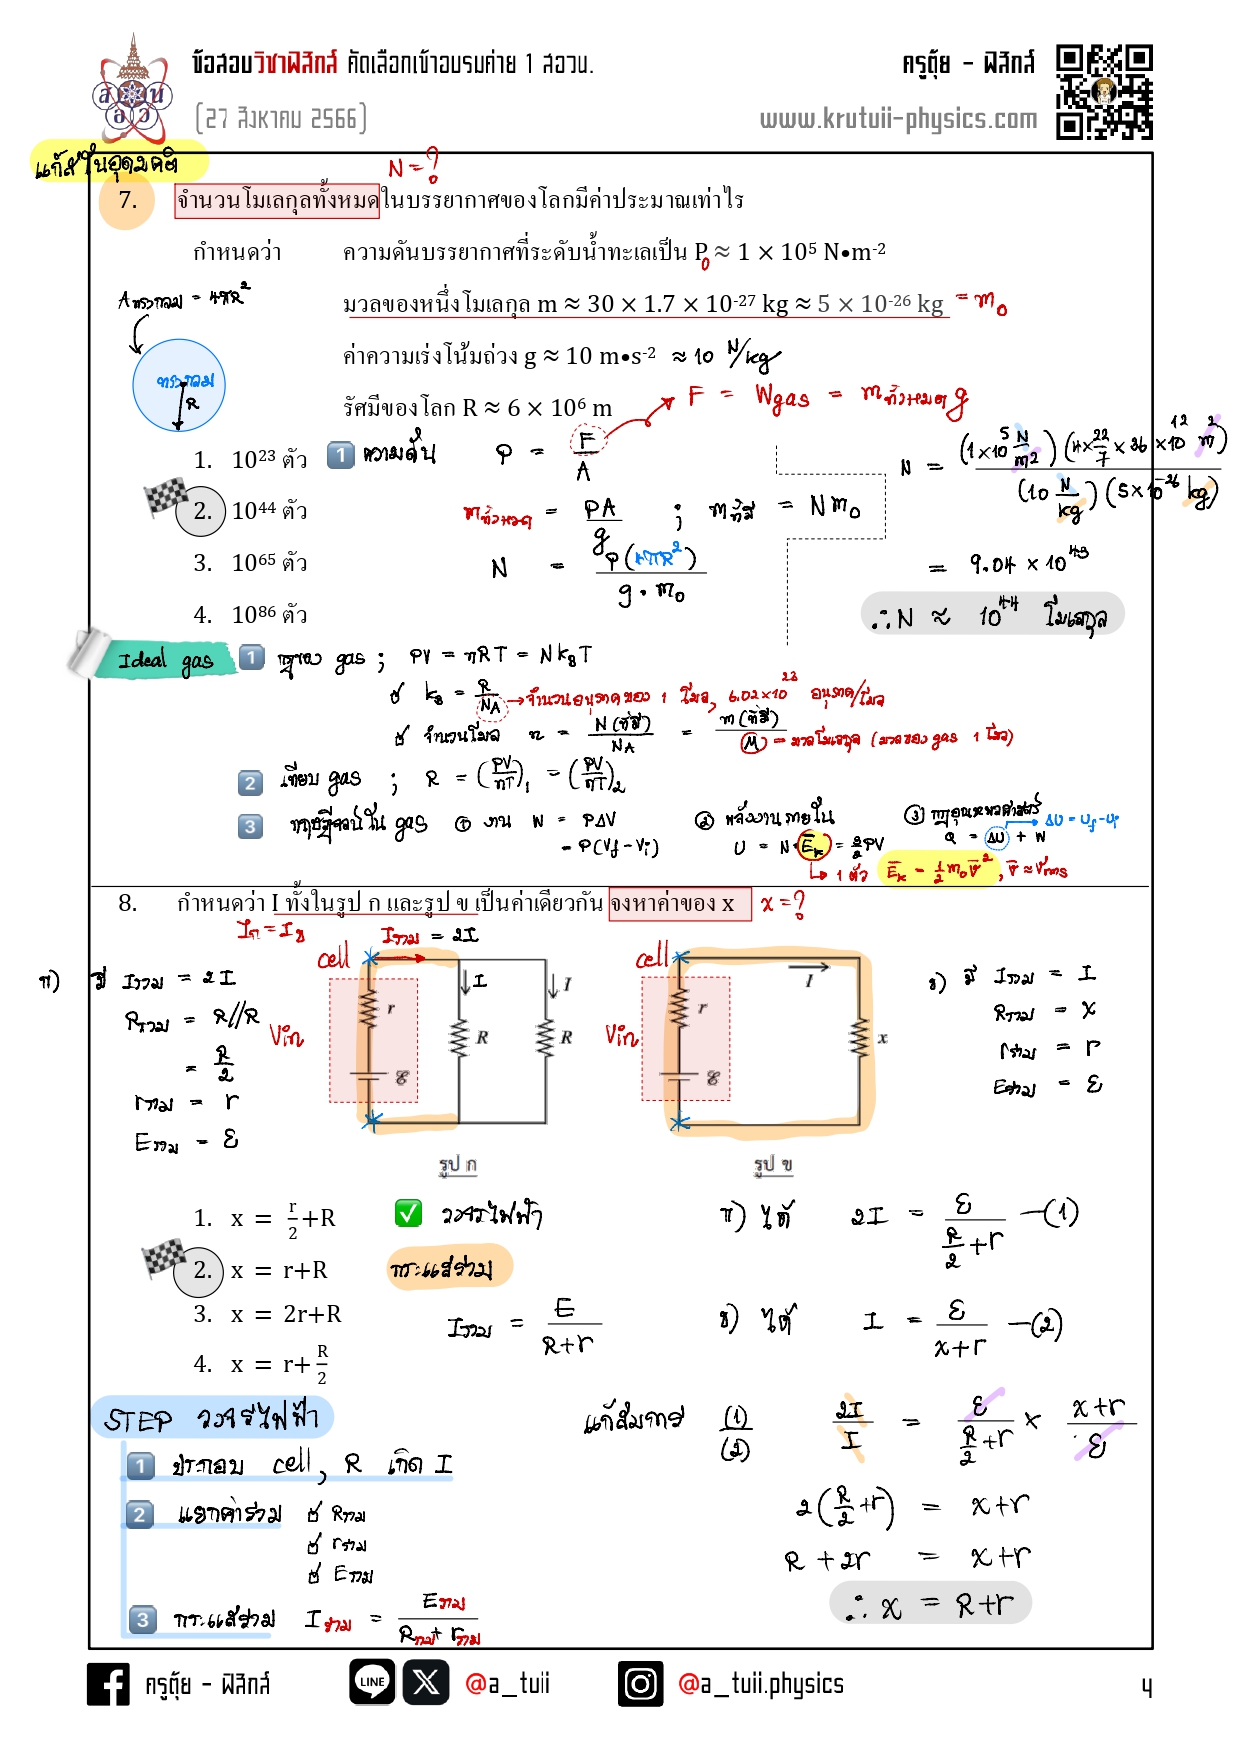 ข้อสอบวิชาฟิสิกส์ คัดเลือกเข้าอบรมค่าย 1 สอวน.
(27 สิงหาคม 2566)
ครูตุ้ย - ฟิสิกส์
www.krutuii-physics.com
สอวน
แก๊สในอุดมคติ
N = ?
7. จำนวนโมเลกุลทั้งหมดในบรรยากาศของโลกมีค่าประมาณเท่าไร
กำหนดว่า ความดันบรรยากาศที่ระดับน้ำทะเลเป็น P₀ ≈ 1 × 10⁵ N•m⁻²
มวลของหนึ่งโมเลกุล m ≈ 30 × 1.7 × 10⁻²⁷ kg ≈ 5 × 10⁻²⁶ kg = m₀
ค่าความเร่งโน้มถ่วง g ≈ 10 m•s⁻² ≈ 10 N/kg
รัศมีของโลก R ≈ 6 × 10⁶ m
A ทรงกลม = 4πR²
ทรงกลม
R
F = Wgas = m ทั้งหมด g
1. 10²³ ตัว
2. 10⁴⁴ ตัว
3. 10⁶⁵ ตัว
4. 10⁸⁶ ตัว
1 ความดัน P = F/A
m ทั้งหมด = PA/g ; m ที่มี = Nm₀
N = P(4πR²)/g·m₀
N = (1×10⁵ N/m²)(4×22/7×36×10¹² m²)/(10 N/kg)(5×10⁻²⁶ kg)
= 9.04 × 10⁴³
∴ N ≈ 10⁴⁴ โมเลกุล
Ideal gas
1 กฎของ gas ; PV = nRT = Nk_BT
k_B = R/N_A → จำนวนอนุภาคของ 1 โมล, 6.02×10²³ อนุภาค/โมล
จำนวนโมล n = N(ที่มี)/N_A = m(ที่มี)/M → มวลโมเลกุล (มวลของ gas 1 โมล)
2 เทียบ gas ; R = (PV/nT)₁ = (PV/nT)₂
3 ทฤษฎีจลน์ใน gas ① งาน W = PΔV
= P(V_f - V_i)
② พลังงานภายใน
U = N·E̅_k = 3/2 PV
↳ 1 ตัว E̅_k = 1/2 m₀v̅², v̅ ≈ v_rms
③ กฎอุณหพลศาสตร์
Q = ΔU + W
ΔU = U_f - U_i
8. กำหนดว่า I ทั้งในรูป ก และรูป ข เป็นค่าเดียวกัน จงหาค่าของ x x = ?
I ก = I ข
I รวม = 2I
cell
Vin
r
ℰ
I
R
I
R
รูป ก
cell
Vin
r
ℰ
I
x
รูป ข
ก) มี I รวม = 2I
R รวม = R//R
= R/2
r รวม = r
E รวม = ε
ข) มี I รวม = I
R รวม = x
r รวม = r
E รวม = ε
1. x = r/2+R
2. x = r+R
3. x = 2r+R
4. x = r+R/2
วงจรไฟฟ้า
กระแสรวม
I รวม = E/R+r
ก) ได้ 2I = ε/(R/2+r) —(1)
ข) ได้ I = ε/(x+r) —(2)
แก้สมการ (1)/(2) 2I/I = ε/(R/2+r) × (x+r)/ε
2(R/2+r) = x+r
R + 2r = x+r
∴ x = R+r
STEP วงจรไฟฟ้า
1 ประกอบ cell, R เกิด I
2 แยกค่ารวม R รวม
r รวม
E รวม
3 กระแสรวม I รวม = E รวม/R รวม + r รวม
ครูตุ้ย - ฟิสิกส์
LINE
@a_tuii
@a_tuii.physics
4